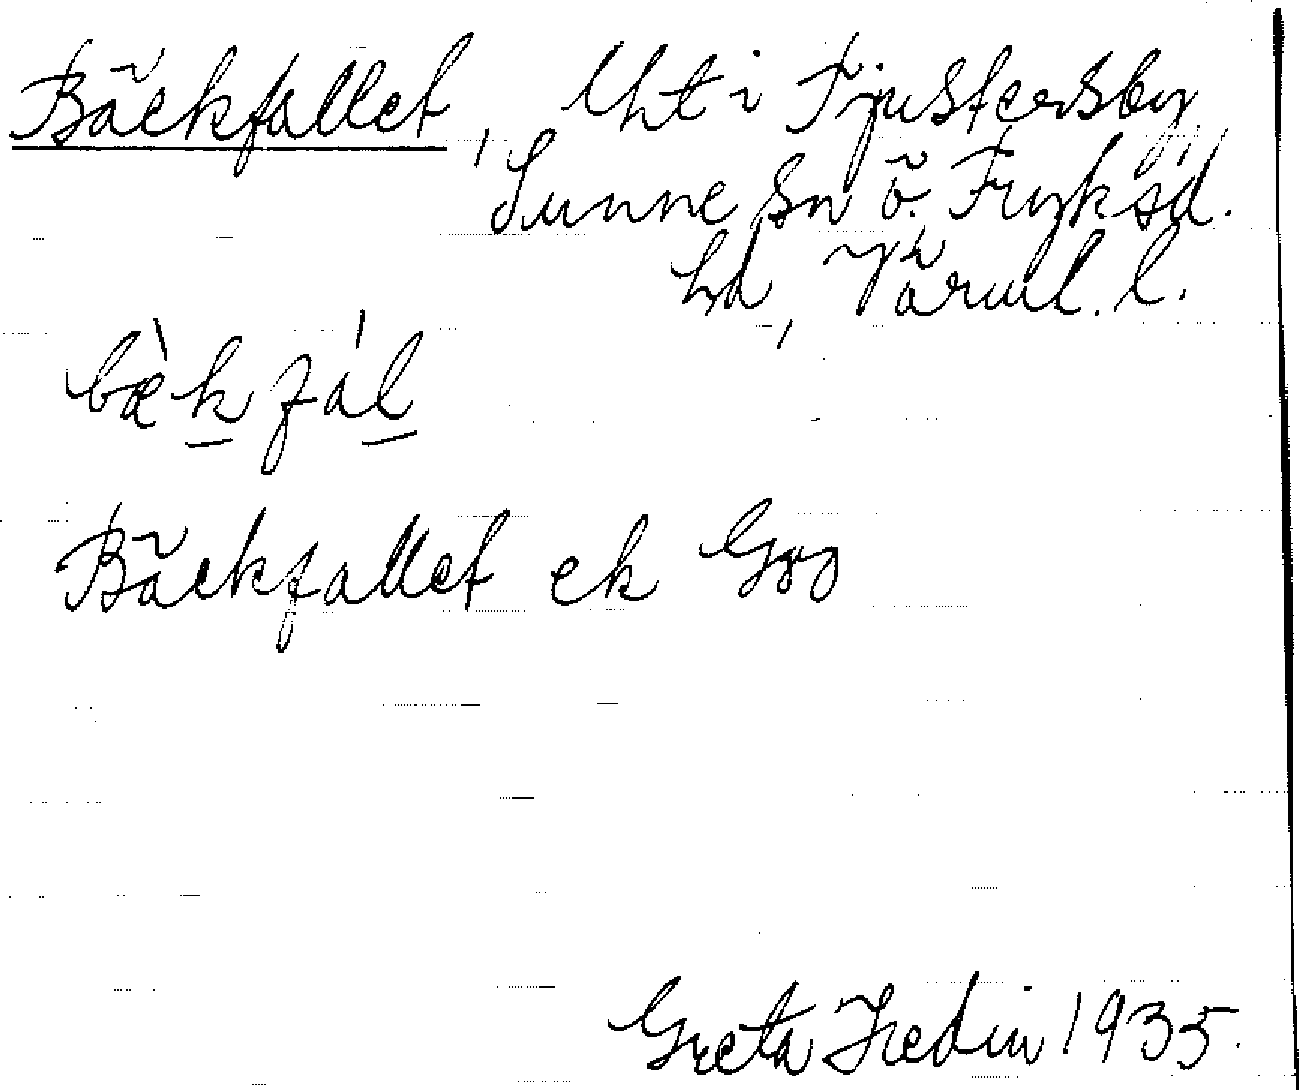 Bäckfallet, lht i Fjustersby,
Sunne sn Ö. Fryksd.
hd, Värml. l.
bæ̀k fál
Bäckfallet ek
Greta Hedin 1935.